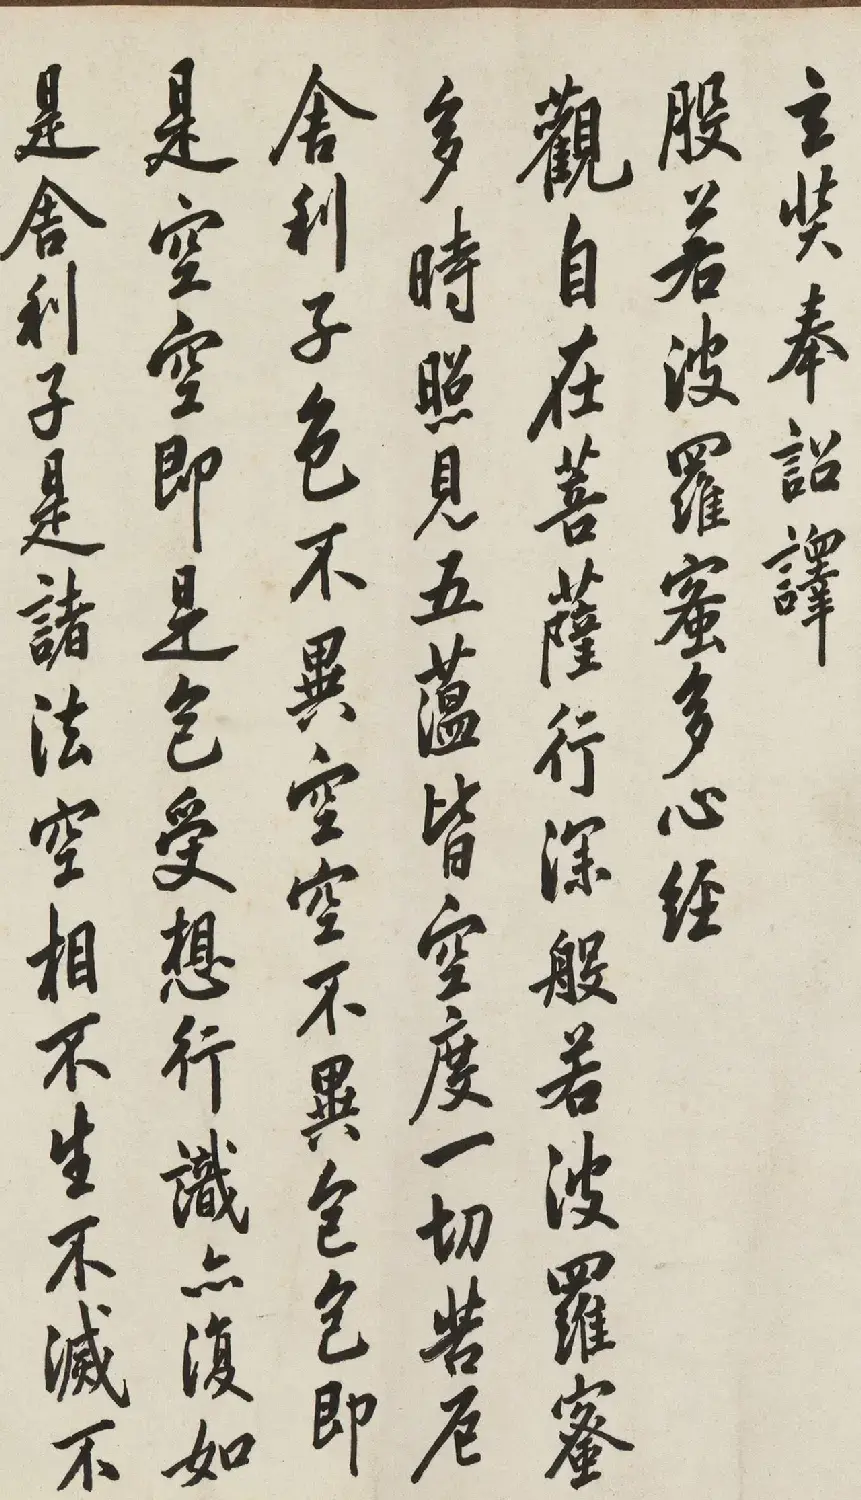 玄奘奉詔譯
般若波羅蜜多心經
觀自在菩薩行深般若波羅蜜
多時照見五蘊皆空度一切苦厄
舍利子色不異空空不異色色即
是空空即是色受想行識亦復如
是舍利子是諸法空相不生不滅不